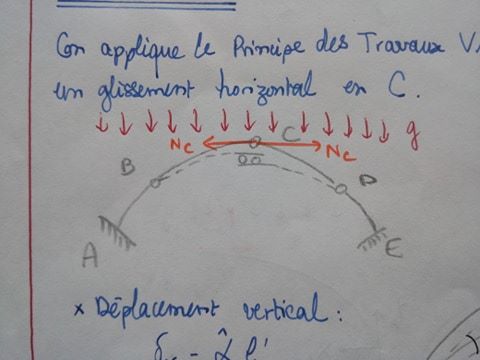 On applique le Principe des Travaux V
un glissement horizontal en C.
g
Nc C Nc
B D
A E
x Déplacement vertical :